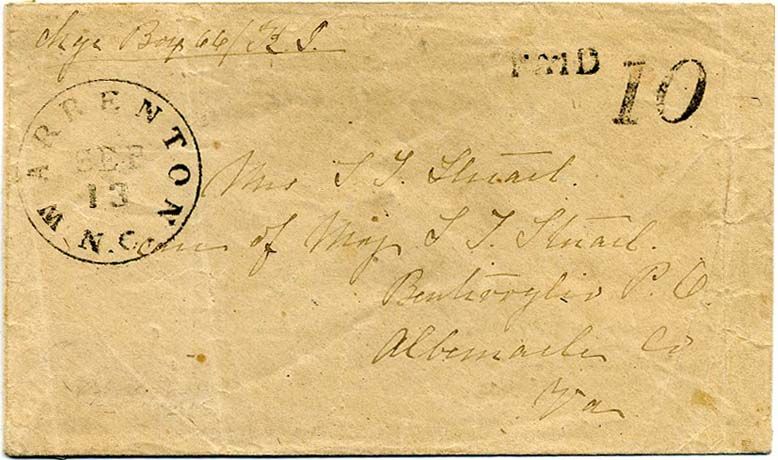 Chge Box 66/
PAID 10
WARRENTON
N.C.
SEP
13
Mrs S T Stuart.
Care of Maj S T Stuart.
Bentivoglio P. O.
Albemarle Co
Va